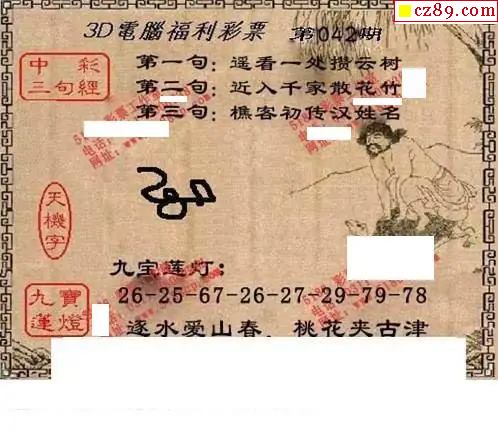 cz89.com
3D電腦福利彩票 第042期
中彩
三句經
第一句：遥看一处攒云树
第二句：近入千家散花竹
第三句：樵客初传汉姓名
天機字
九宝莲灯：
九寶蓮燈
26-25-67-26-27-29-79-78
逐水爱山春，桃花夹古津